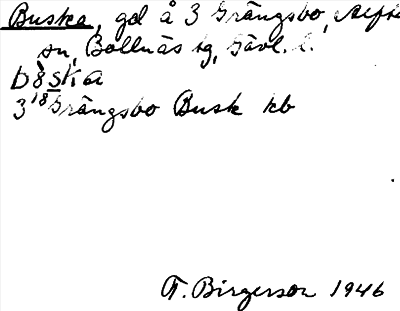 Buska, gd å 3 Grängsbo, Alfta
sn, Bollnäs tg, Gävl. l.
bɵska
3¹⁸ Grängsbo Busk kb
T. Birgerson 1946